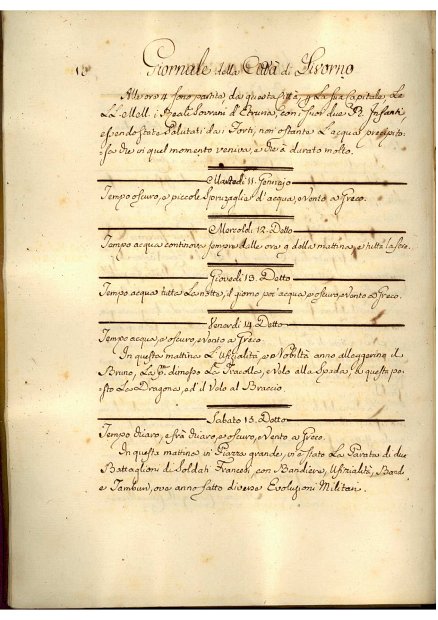 18 Giornale della Città di Livorno
Alle ore 4 sono partite da questa Città p. La sua Capitale, Le
LL. Mell. i Reali Sovrani d'Etruria, con i suoi due R. Infanti,
essendo state Salutati da i Forti, non'ostante L'acqua precipito-
sa che in quel momento veniva, e che à durato molto.
Martedì 11. Gennajo
Tempo oscuro, e piccole Spruzaglie d'acqua, e Vento a Greco.
Mercoldì 12. Detto
Tempo acqua continova sempre dalle ore 9 della mattina, e tutta la sera.
Giovedì 13. Detto
Tempo acqua tutta La notte, il giorno poi acqua e oscuro, e Vento a Greco.
Venerdì 14. Detto
Tempo acqua, e oscuro, e Vento a Greco
In questa mattina L'Ufizialità, e Nobiltà anno alleggerito il
Bruno, La dimesso Le Tracolle, e Velo alla Spada, a questa po-
sto La Dragona, ed' il Velo al Braccio
Sabato 15. Detto
Tempo chiaro, e frà chiaro, e oscuro, e Vento a Greco.
In questa mattina in Piazza grande, vi è stato La Parata di due
Battaglioni di Soldati Francesi, con Bandiere, Ufizialità, Band
e Tamburi, ove anno fatto diverse Evoluzioni Militari.